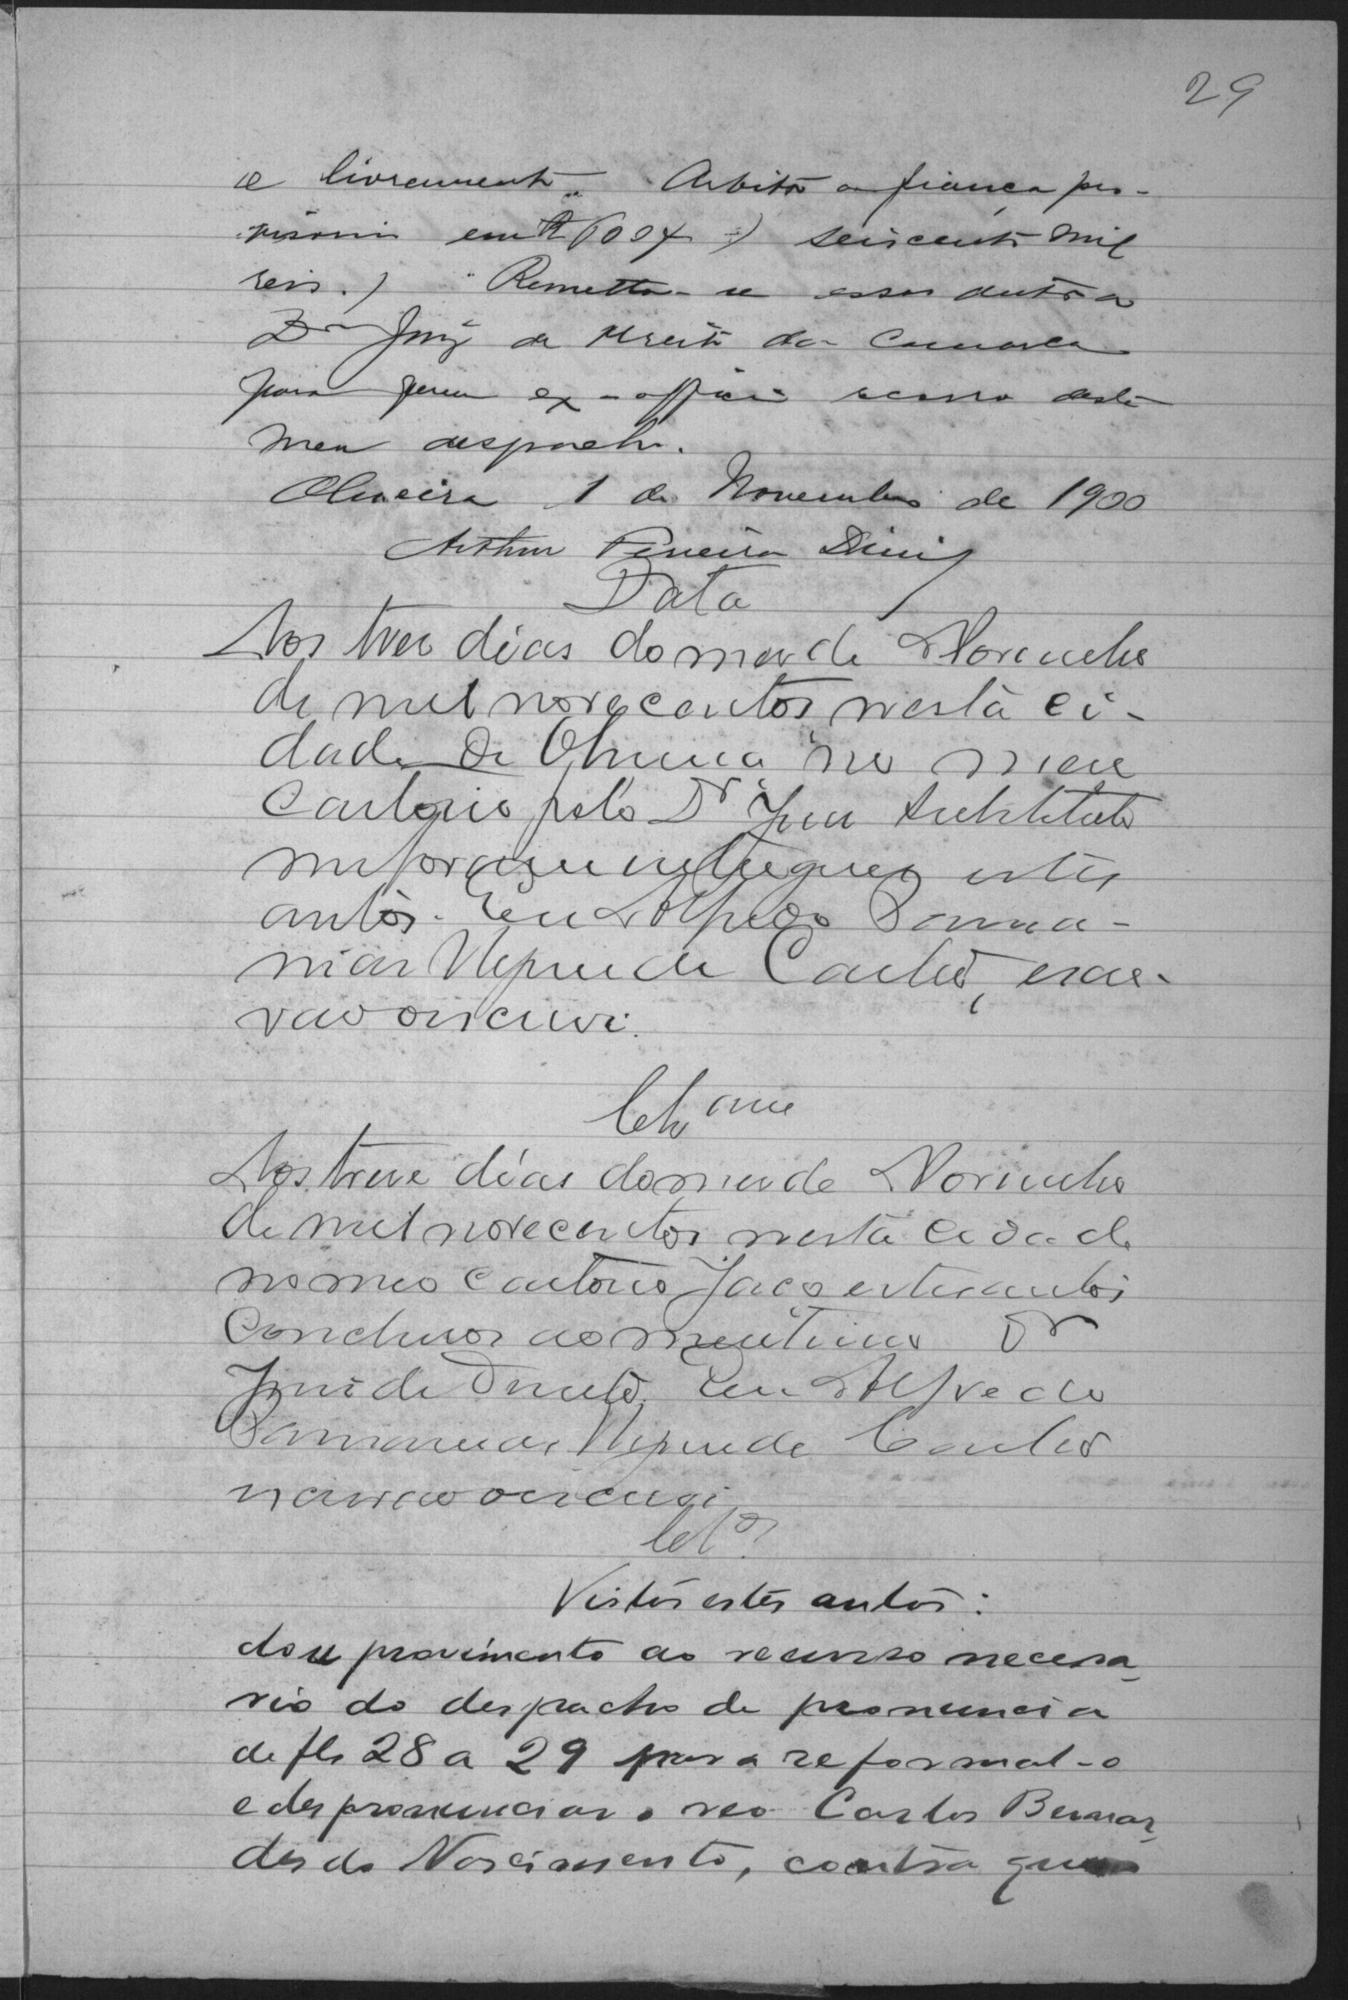 29
e livramento. Arbitro a fiança pro-
visoria em seiscentos mil
reis.) Remetta-se esses autos ao
Dr Juiz de Direito da Comarca
para ex-officio recurso deste
meu despacho.
Oliveira 1 de Novembro de 1900
Arthur Pereira Diniz
Data
Aos tres dias do mez de Novembro
de mil novecentos nesta ci-
dade de Oliveira no meu
Cartorio pelo Dr Juiz Substituto
me foram entregues estes
autos. Eu Alfredo
de Castro, escri-
vão o escrevi.
Clsam
Aos treze dias do mez de Novembro
de mil novecentos nesta cidade
no meo cartorio faço estes autos
Conclusos ao meritissimo Dr
Juiz de Direito. Eu Alfredo
de Castro
escrivão o escrevi
Clos
Vistos estes autos:
dou provimento ao recurso necessa-
rio do despacho de pronuncia
de fls 28 a 29 para reformal-o
e despronunciar o reo Carlos Bernar-
des do Nascimento, contra quem